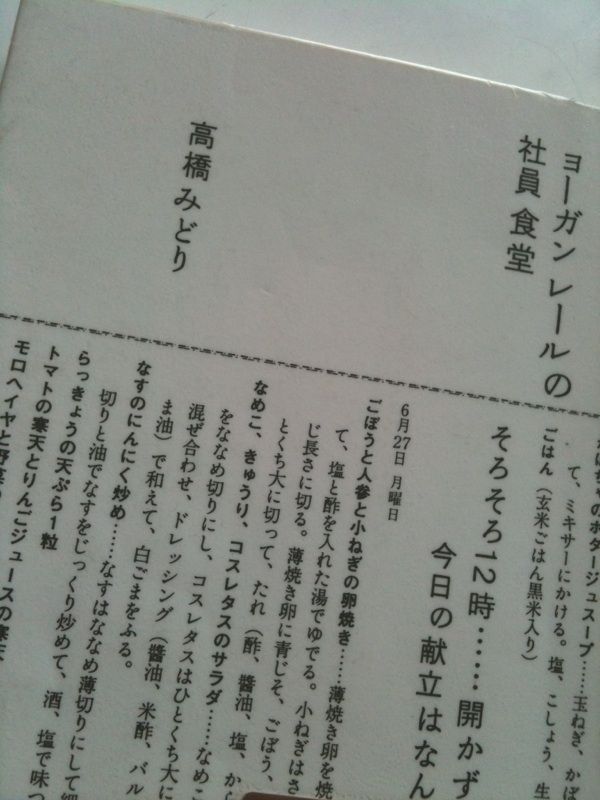 ヨーガン レールの
社員 食堂
高橋みどり
かぼちゃのポタージュスープ……玉ねぎ、かぼ
て、ミキサーにかける。塩、こしょう、生
ごはん（玄米ごはん黒米入り）
そろそろ12時……開かず
今日の献立はなん
6月27日 月曜日
ごぼうと人参と小ねぎの卵焼き……薄焼き卵を焼
て、塩と酢を入れた湯でゆでる。小ねぎはさ
じ長さに切る。薄焼き卵に青じそ、ごぼう、
なめこ、きゅうり、コスレタスのサラダ……なめこ
とくち大に切って、たれ（酢、醬油、塩、から
をななめ切りにし、コスレタスはひとくち大に
混ぜ合わせ、ドレッシング（醬油、米酢、バル
ま油）で和えて、白ごまをふる。
なすのにんにく炒め……なすはななめ薄切りにして細
切りと油でなすをじっくり炒めて、酒、塩で味つ
らっきょうの天ぷら1粒
トマトの寒天とりんごジュースの寒天
モロヘイヤと野菜